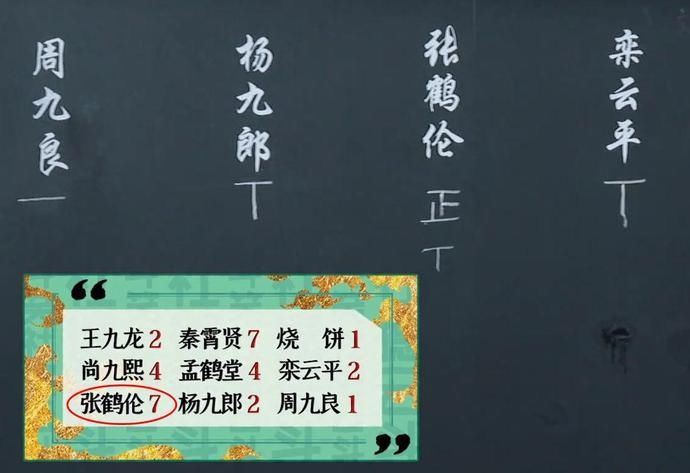 周九良
杨九郎
张鹤伦
栾云平
一
丅
正丅
丅
王九龙2 秦霄贤7 烧 饼1
尚九熙4 孟鹤堂4 栾云平2
张鹤伦7 杨九郎2 周九良1